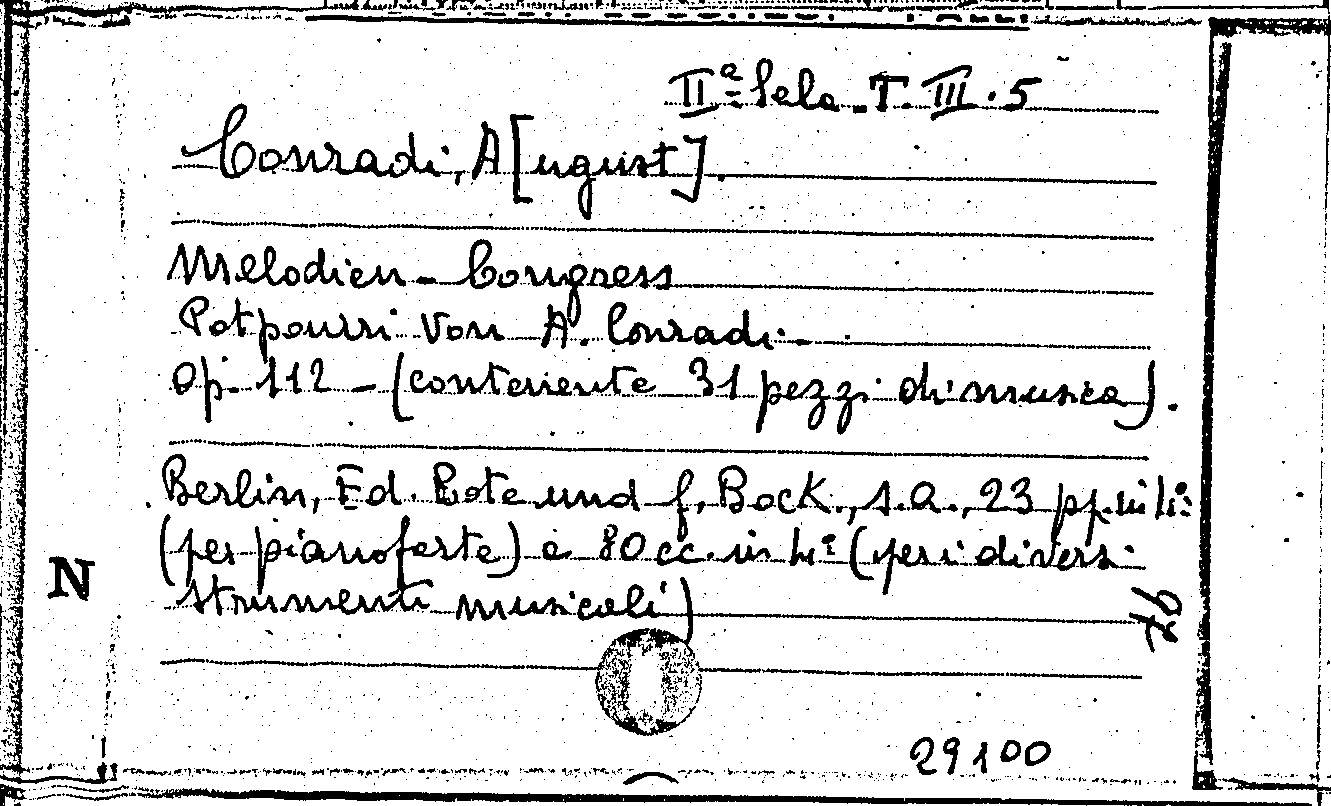 IIª Sala. T. III. 5
Conradi, A[ugust].
Melodien - Congress
Potpourri von A. Conradi -
Op. 112 - (contenente 31 pezzi di musica).
Berlin, Ed. Bote und G. Bock., s.a., 23 pp. in li:
(per pianoforte) e 80 cc. in 4º (per i diversi
strumenti musicali)
N
29100